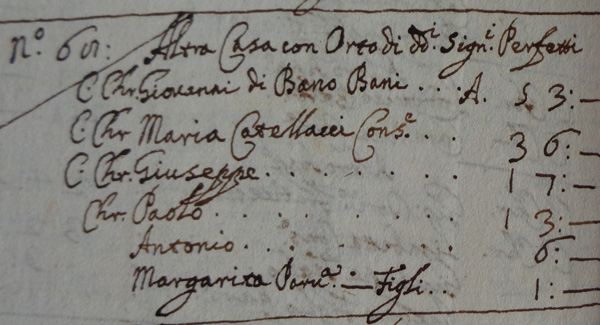 N.º 65: Altra Casa con Orto di dd.i Sign.i Perfetti
C. Chr. Giovanni di Bani . . . A. 5 3:—
C. Chr Maria Catellacci Cons.e . . . 3 6:—
C. Chr. Giuseppe . . . . . . . 1 7:—
Chr. Paolo . . . . . . . . . 1 3:—
Antonio . . . . . . . . 6:—
Margarita Parv.a — Figli . . 1:—